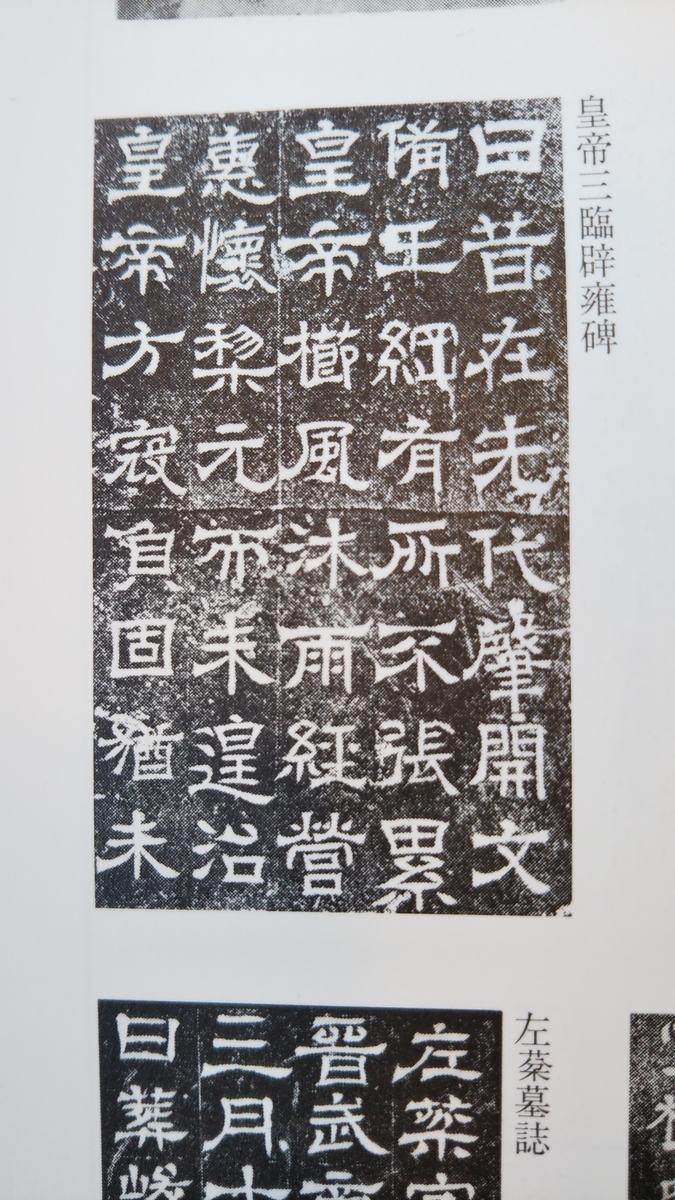 皇帝三臨辟雍碑
曰昔在先代肇開文
備王綱有所不張累
皇帝櫛風沐雨經營
惠懷黎元而未遑治
皇帝方寇負固猶未
左棻墓誌
左棻字
晉武帝
三月十
日葬峻